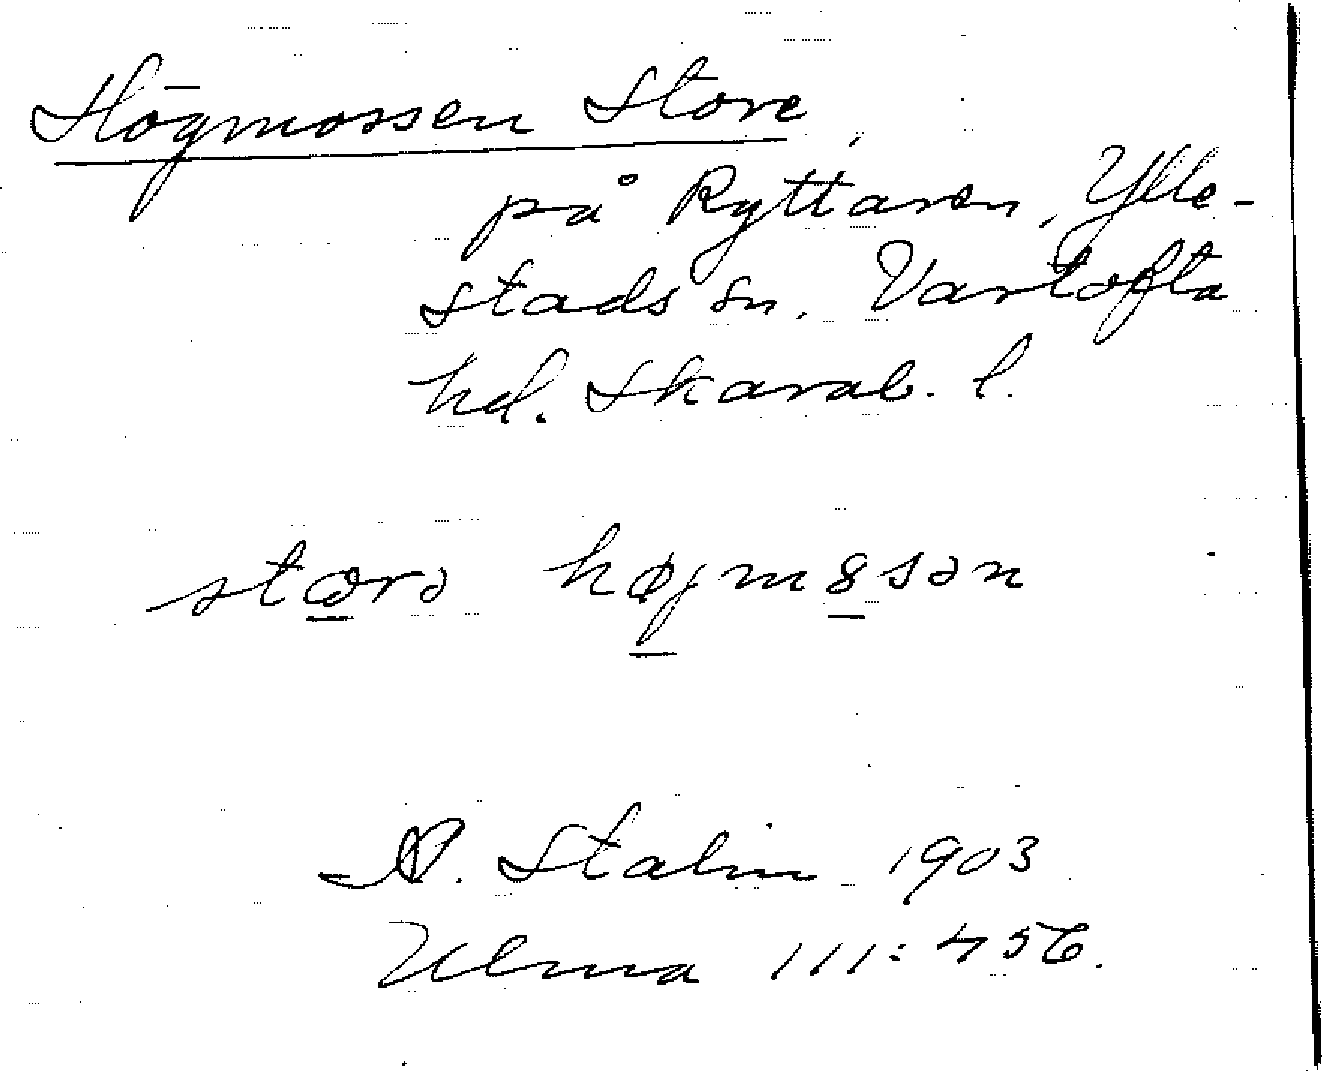 Högmossen Store,
på Ryttaren, Ylle-
stads sn. Vartofta
hd. Skarab. l.
storə højm8sən
Stalin 1903
Ulma 111:456.